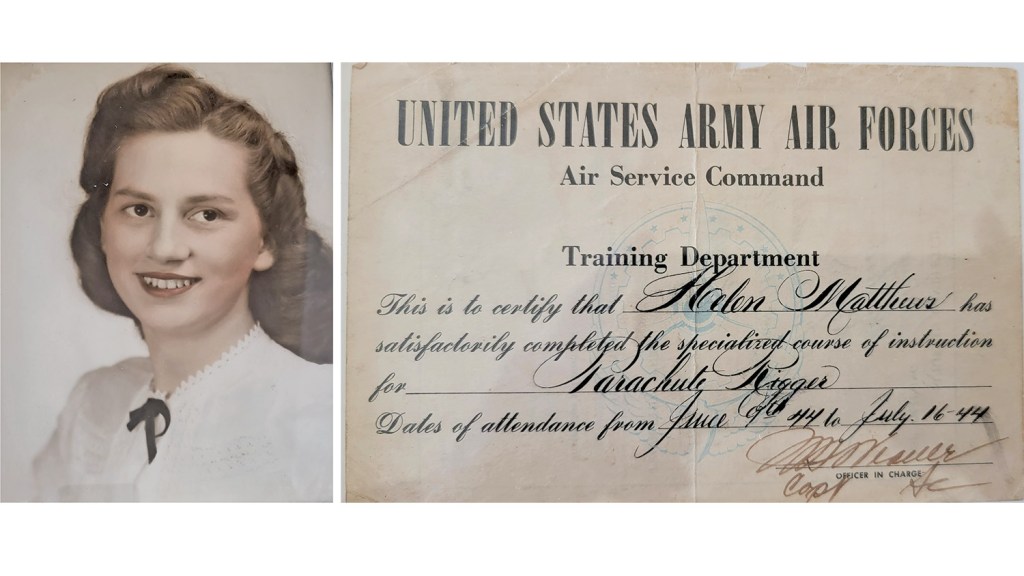 UNITED STATES ARMY AIR FORCES
Air Service Command
Training Department
This is to certify that Helen Matthews has
satisfactorily completed the specialized course of instruction
for Parachute Rigger
Dates of attendance from June 9th 44 to July. 16-44
OFFICER IN CHARGE
Capt